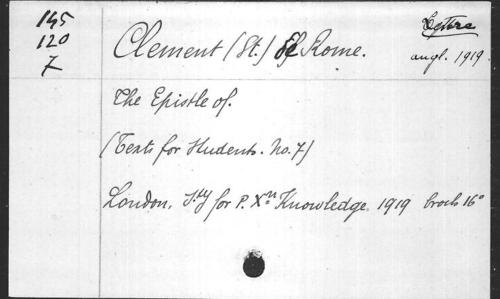 145
120
7
Clement (St.) of Rome.
Lettre
angl. 1919.
The Epistle of.
(Texts for Students. No. 7)
London, S.ty for P. Xn Knowledge 1919 broch 16°